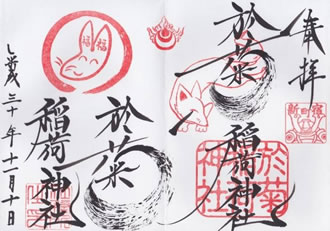 奉拝
於菊
稲荷神社
新町宿
於菊
神社
於菊
稲荷神社
福
福
平成三十年十一月十日